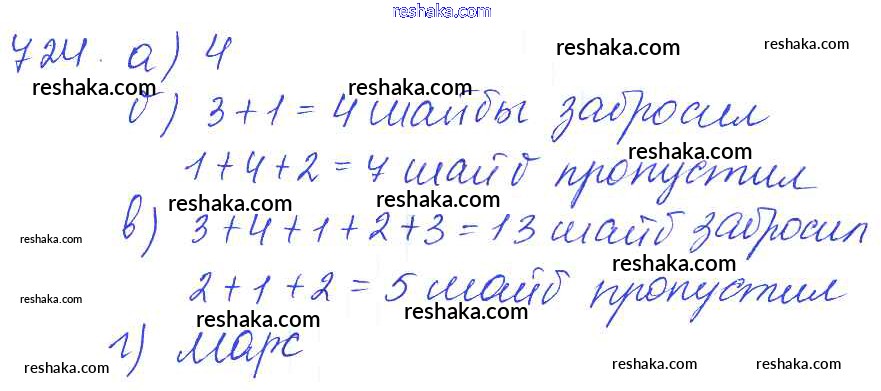 reshaka.com
724. а) 4
reshaka.com
reshaka.com
б) 3+1=4 шайбы забросил
reshaka.com
1+4+2=7 шайб пропустил
reshaka.com
reshaka.com
в) 3+4+1+2+3=13 шайб забросил
reshaka.com
reshaka.com
2+1+2=5 шайб пропустил
reshaka.com
reshaka.com
г) Марс
reshaka.com
reshaka.com
reshaka.com